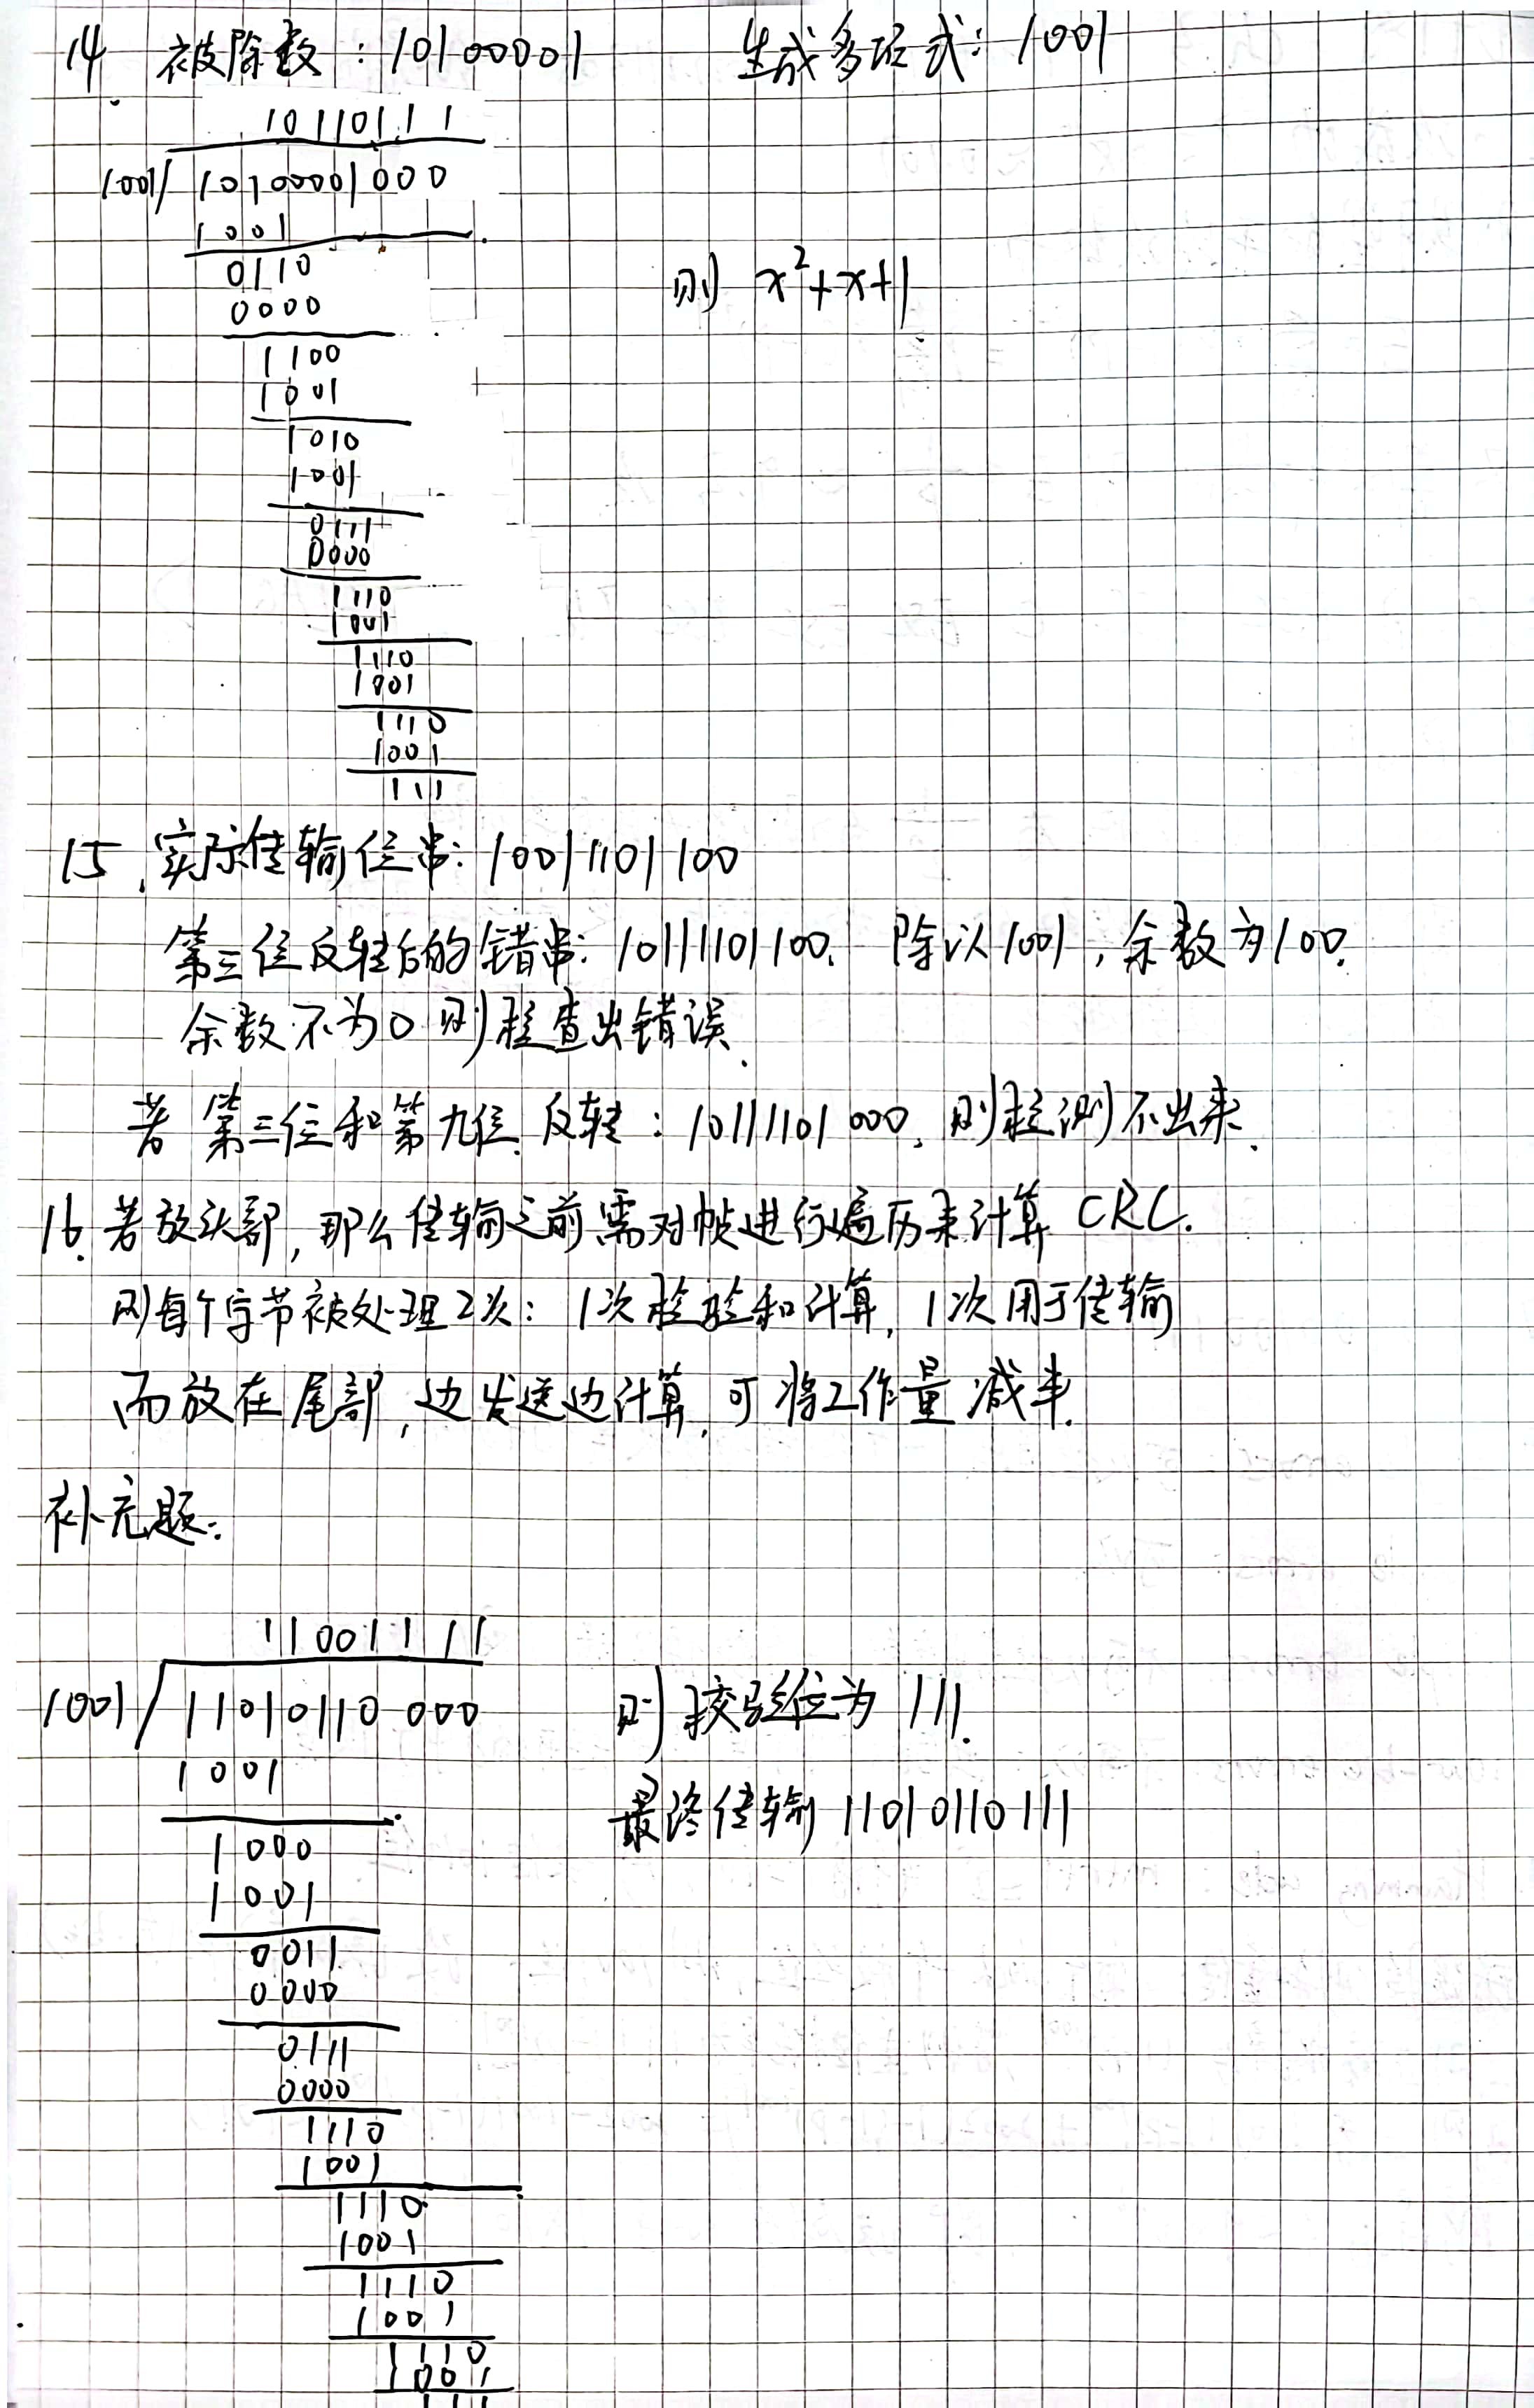 14. 被除数：10100001 生成多项式：1001
10110111
1001/ 10100001000
1001
0110
0000
则 x²+x+1
1100
1001
1010
1001
0111
0000
1110
1001
1110
1001
1110
1001
111
15. 实际传输位串：10011101100
第三位反转后的错串：10111101100. 除以1001，余数为100.
余数不为0 则检查出错误.
若第三位和第九位反转：10111101000，则检测不出来.
16. 若放头部，那么传输之前需对帧进行遍历来计算 CRC.
则每个字节被处理2次：1次检验和计算，1次用于传输
而放在尾部，边发送边计算，可将工作量减半.
补充题：
11001111
1001/ 11010110000 则校验位为 111.
1001
最终传输 11010110111
1000
1001
0011
0000
0111
0000
1110
1001
1110
1001
1110
1001
1110
1001
111